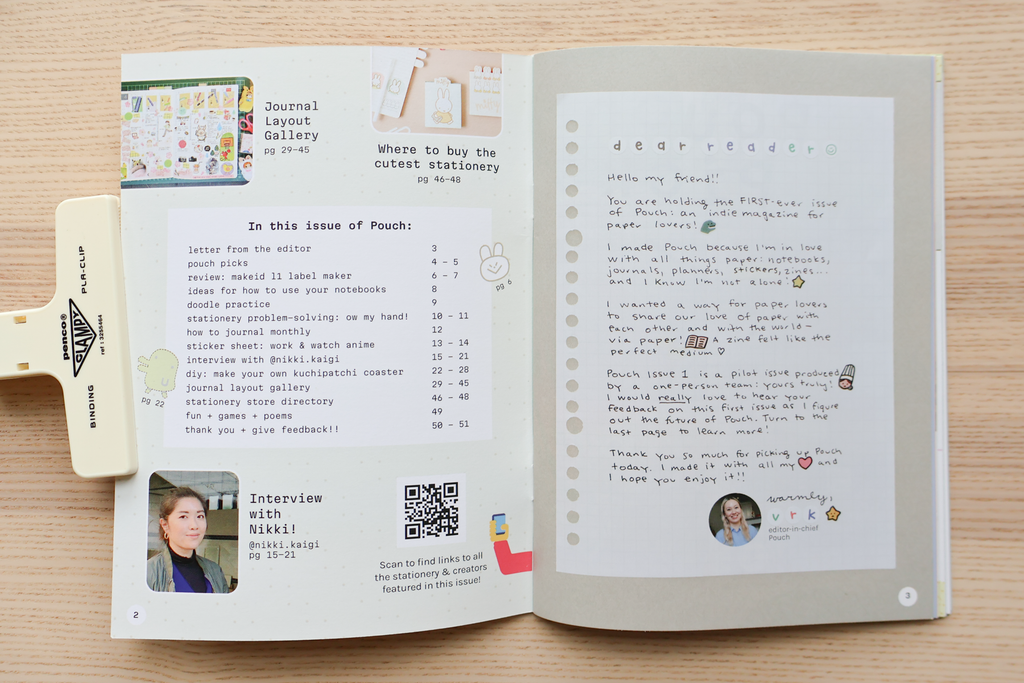 Journal
Layout
Gallery
pg 29-45
Where to buy the
cutest stationery
pg 46-48
In this issue of Pouch:
letter from the editor 3
pouch picks 4 - 5
review: makeid l1 label maker 6 - 7
ideas for how to use your notebooks 8
doodle practice 9
stationery problem-solving: ow my hand! 10 - 11
how to journal monthly 12
sticker sheet: work & watch anime 13 - 14
interview with @nikki.kaigi 15 - 21
diy: make your own kuchipatchi coaster 22 - 28
journal layout gallery 29 - 45
stationery store directory 46 - 48
fun + games + poems 49
thank you + give feedback!! 50 - 51
pg 6
pg 22
Interview
with
Nikki!
@nikki.kaigi
pg 15-21
Scan to find links to all
the stationery & creators
featured in this issue!
2
PLA-CLIP
penco®
CLAMPY
ref : 3255464
BINDING
dear reader
Hello my friend!!
You are holding the FIRST-ever issue
of Pouch: an indie magazine for
paper lovers!
I made Pouch because I'm in love
with all things paper: notebooks,
journals, planners, stickers, zines...
and I know I'm not alone!
I wanted a way for paper lovers
to share our love of paper with
each other and with the world –
via paper! A zine felt like the
perfect medium ♡
Pouch Issue 1 is a pilot issue produced
by a one-person team: yours truly!
I would really love to hear your
feedback on this first issue as I figure
out the future of Pouch. Turn to the
last page to learn more!
Thank you so much for picking up Pouch
today. I made it with all my and
I hope you enjoy it!!
warmly,
vrk
editor-in-chief
Pouch
3